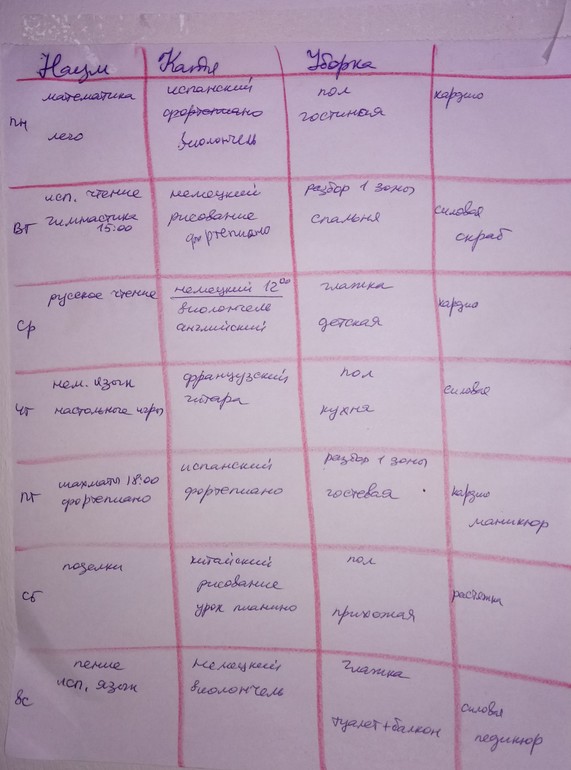 Наум Катя Уборка
пн
математика
лего
испанский
фортепиано
виолончель
пол
гостиная
кардио
вт
исп. чтение
гимнастика
15:00
немецкий
рисование
фортепиано
разбор 1 зоны
спальня
силовая
скраб
ср
русское чтение
немецкий 12 00
виолончель
английский
глажка
детская
кардио
чт
нем. язык
настольные игры
французский
гитара
пол
кухня
силовая
пт
шахматы 18:00
фортепиано
испанский
фортепиано
разбор 1 зоны
гостевая
кардио
маникюр
сб
поделки
китайский
рисование
урок пианино
пол
прихожая
растяжка
вс
пение
исп. язык
немецкий
виолончель
глажка
туалет+балкон
силовая
педикюр